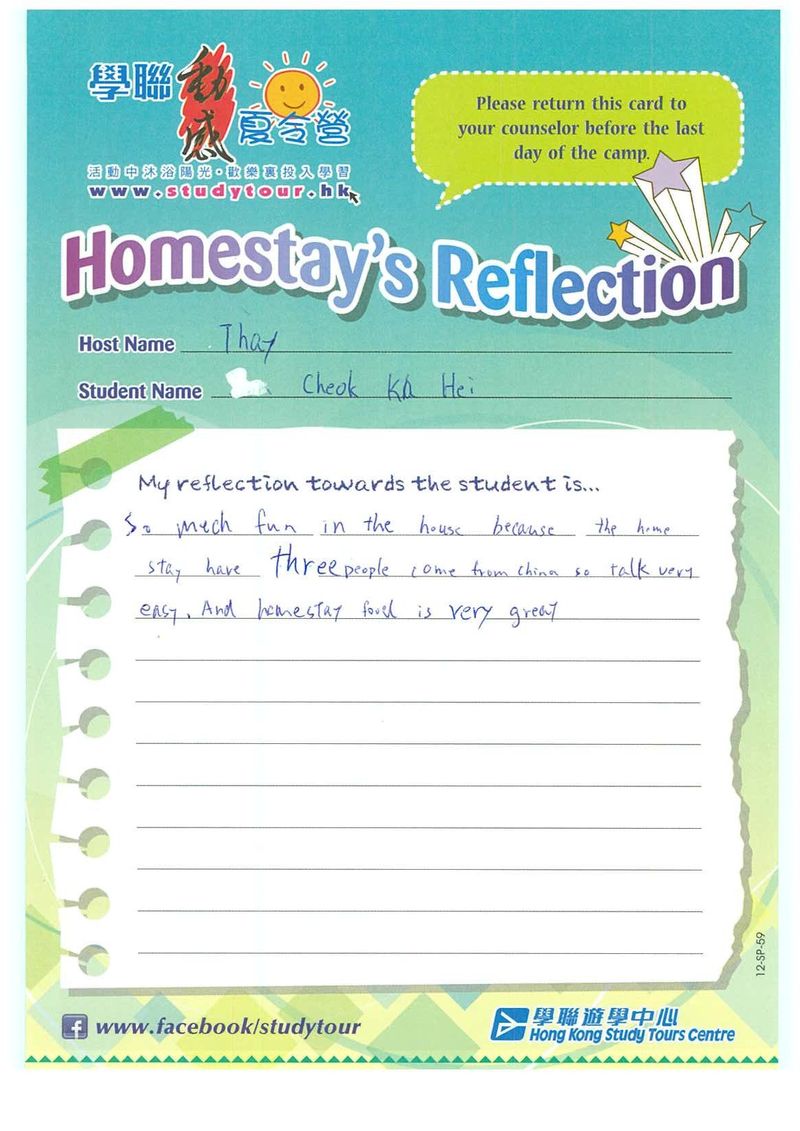 學聯動感夏令營
活動中沐浴陽光・歡樂裏投入學習
www.studytour.hk
Please return this card to
your counselor before the last
day of the camp.
Homestay's Reflection
Host Name Thay
Student Name Cheok Ka Hei
My reflection towards the student is...
So mech fun in the house because the home
stay have three people come from china so talk very
easy. And homestay food is very great
12-SP-59
www.facebook/studytour
學聯遊學中心
Hong Kong Study Tours Centre